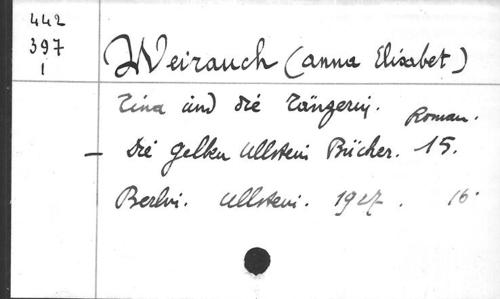 442
397
1
Weirauch (Anna Elisabet)
Tina und die Tänzerin.
Roman.
– Die gelben Ullstein Bücher. 15.
Berlin. Ullstein. 1927. 16.